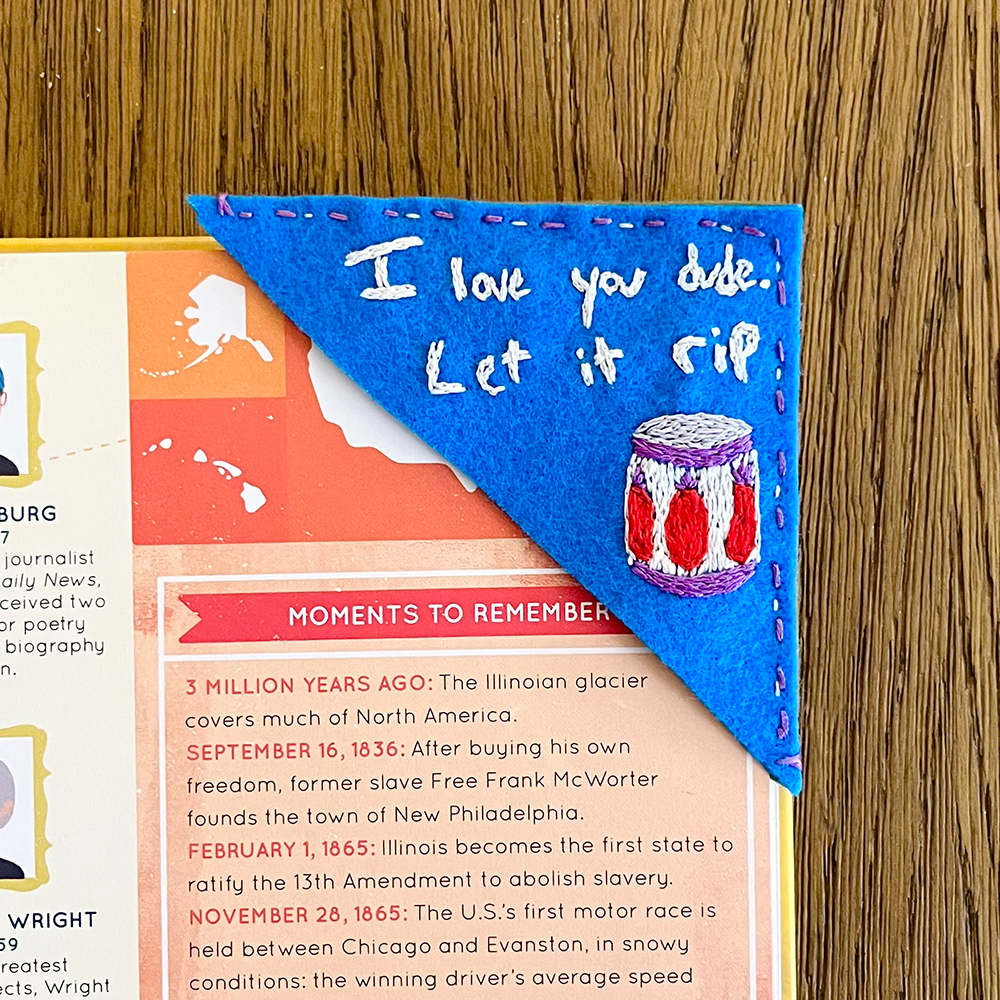 I love you dude.
Let it rip
BURG
7
journalist
aily News,
ceived two
or poetry
biography
n.
WRIGHT
59
reatest
ects, Wright
MOMENTS TO REMEMBER
3 MILLION YEARS AGO: The Illinoian glacier
covers much of North America.
SEPTEMBER 16, 1836: After buying his own
freedom, former slave Free Frank McWorter
founds the town of New Philadelphia.
FEBRUARY 1, 1865: Illinois becomes the first state to
ratify the 13th Amendment to abolish slavery.
NOVEMBER 28, 1865: The U.S.'s first motor race is
held between Chicago and Evanston, in snowy
conditions: the winning driver's average speed